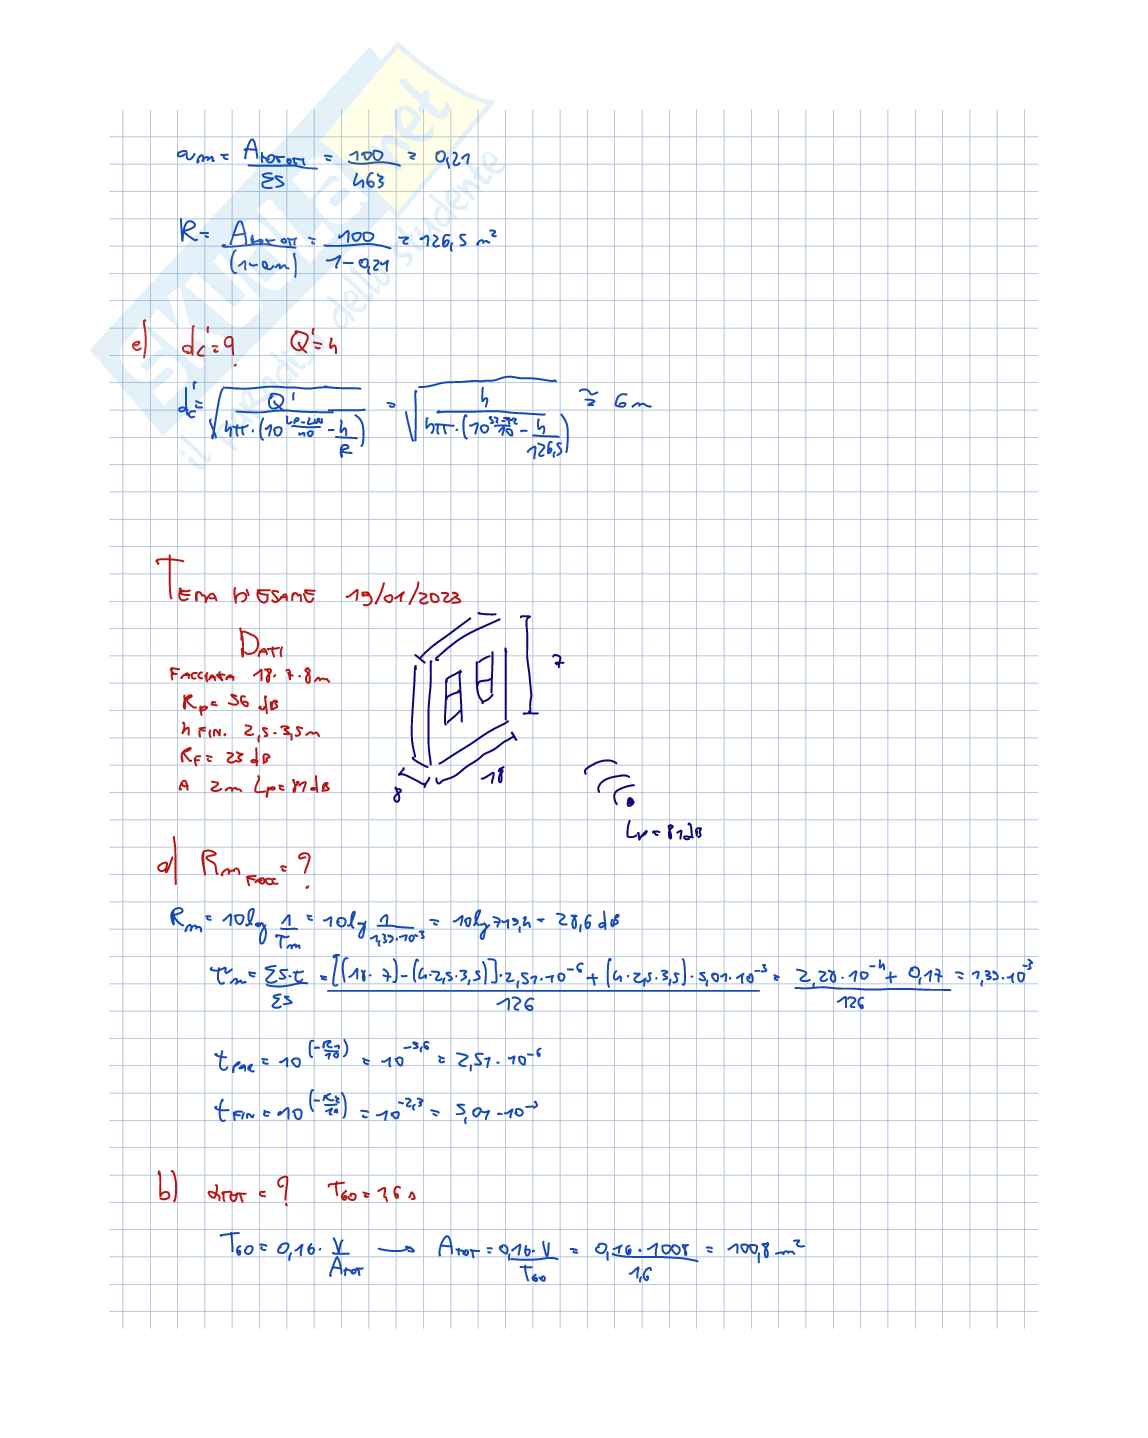 αm = A tot ott / ΣS = 100 / 463 = 0,21
R = A tot ott / (1-αm) = 100 / 1-0,21 = 126,5 m²
e) dc' = ? Q' = 4
dc' = √ Q' / 4π·(10^(Lp-Lw/10) - 4/R) = √ 4 / 4π·(10 - 4/126,5) ≅ 6 m
TEMA D'ESAME 19/01/2023
DATI
FACCIATA 18·7·8m
Rp = 56 dB
4 FIN. 2,5·3,5m
RF = 23 dB
A 2m Lp = 81 dB
7
18
8
Lp = 81 dB
a) Rm FACC = ?
Rm = 10 log 1/τm = 10 log 1/1,39·10^-3 = 10 log 719,4 = 28,6 dB
τm = ΣS·t / ΣS = [(18·7)-(4·2,5·3,5)]·2,51·10^-6 + (4·2,5·3,5)·5,01·10^-3 / 126 = 2,28·10^-4 + 0,17 / 126 = 1,39·10^-3
t PAR = 10^(-R1/10) = 10^-5,6 = 2,51·10^-6
t FIN = 10^(-R2/10) = 10^-2,3 = 5,01·10^-3
b) αTOT = ? T60 = 1,6 s
T60 = 0,16· V / ATOT → ATOT = 0,16·V / T60 = 0,16·1008 / 1,6 = 100,8 m²
SKUOLA.net
il paradiso dello studente